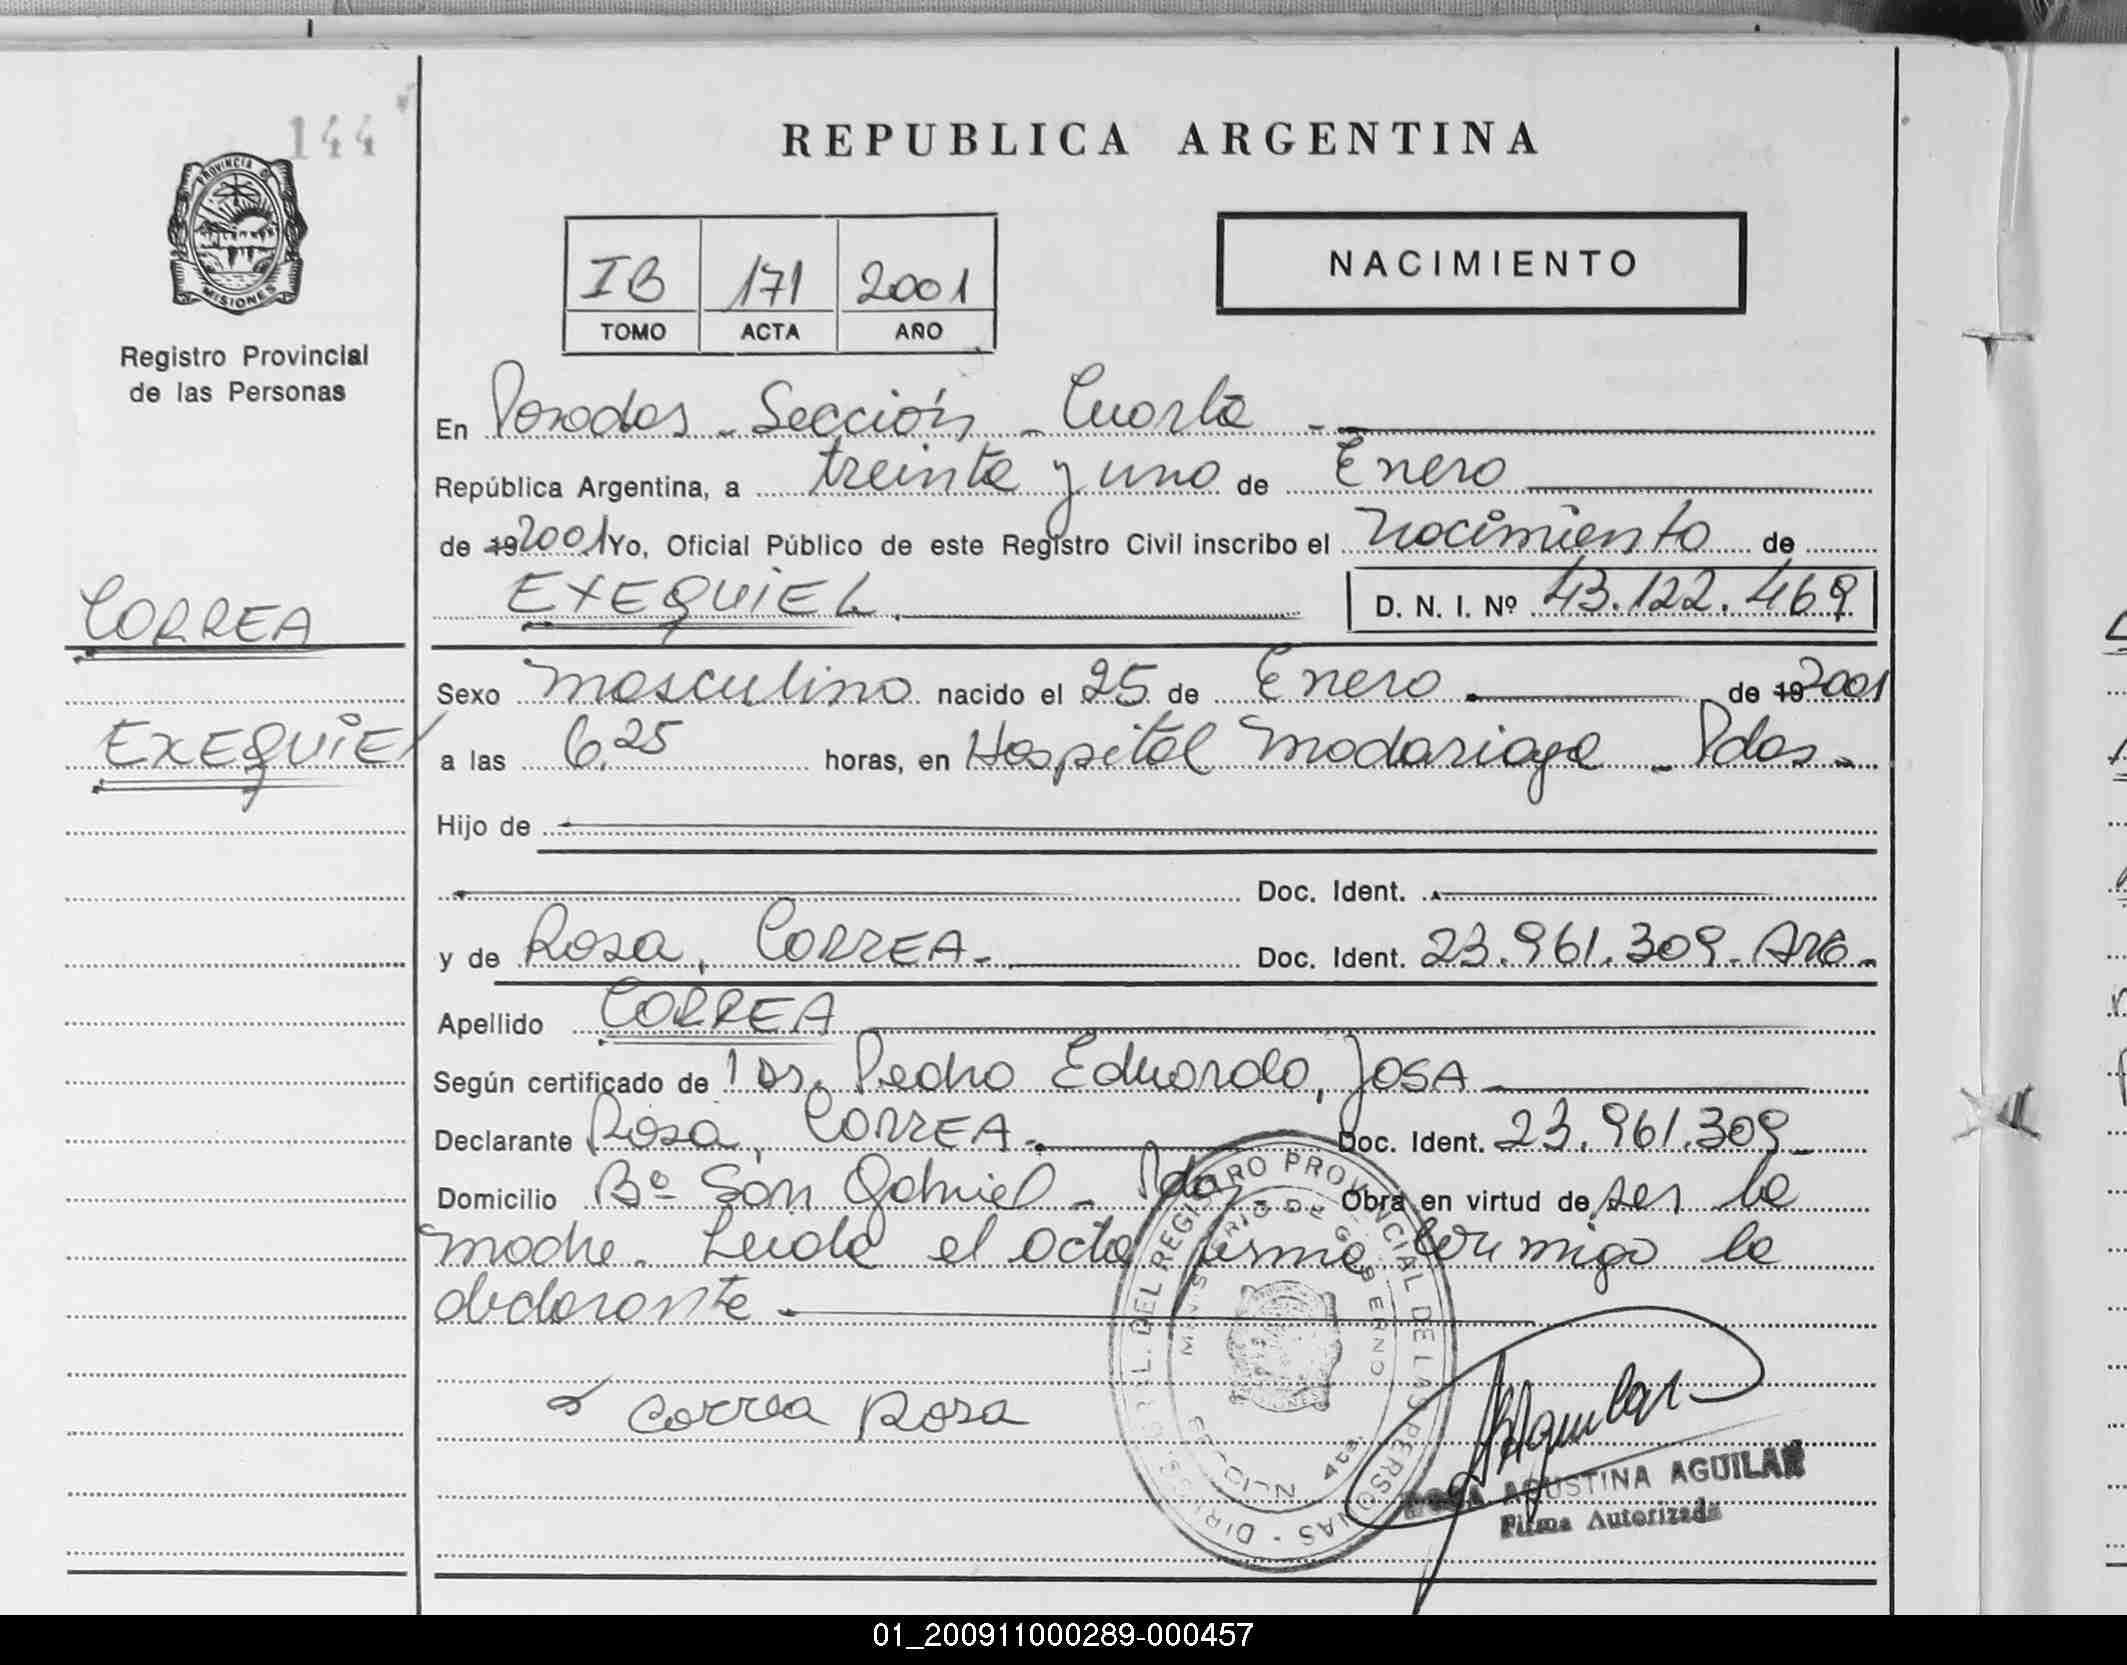 144
PROVINCIA DE
MISIONES
Registro Provincial
de las Personas
CORREA
EXEQUIEL
REPUBLICA ARGENTINA
IB 171 2001
TOMO ACTA AÑO
NACIMIENTO
En Posadas - Sección - Cuarta -
República Argentina, a treinta y uno de Enero
de 19 2001 Yo, Oficial Público de este Registro Civil inscribo el Nacimiento de
EXEQUIEL. D. N. I. Nº 43.122.469
Sexo masculino nacido el 25 de Enero de 19 2001
a las 6,25 horas, en Hospital Madariaga - Pdas -
Hijo de
Doc. Ident.
y de Rosa, CORREA. Doc. Ident. 23.961.309 - ARG.
Apellido CORREA
Según certificado de 1 Dr. Pedro Eduardo, JOSA
Declarante Rosa, CORREA. Doc. Ident. 23.961.309 -
Domicilio Bº San Gabriel - Pdas Obra en virtud de ser la
madre. Leída el acta firma conmigo la
declarante
Correa Rosa
DEL REGISTRO PROVINCIAL DE LAS PERSONAS
MINISTERIO DE GOBIERNO
MISIONES
SECCION 4ta.
ROSA AGUSTINA AGUILAR
Firma Autorizada
01_200911000289-000457